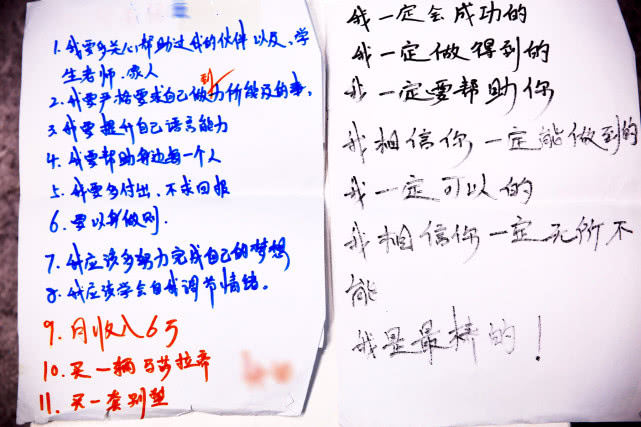 1. 我要多关心帮助过我的伙伴以及、学
生老师、家人
2. 我要严格要求自己做到力所能及的事。
3. 我要提升自己语言能力
4. 我要帮助身边每一个人
5. 我要多付出、不求回报
6. 要以身做则.
7. 我应该多努力完成自己的梦想
8. 我应该学会自我调节情绪。
9. 月收入6万
10. 买一辆马莎拉蒂
11. 买一套别墅
我一定会成功的
我一定做得到的
我一定要帮助你
我相信你一定能做到的
我一定可以的
我相信你一定无所不
能
我是最棒的！